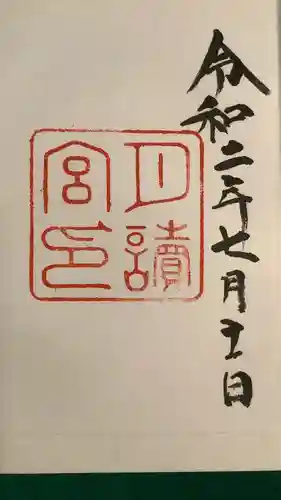 令和二年七月五日
月讀
宮印